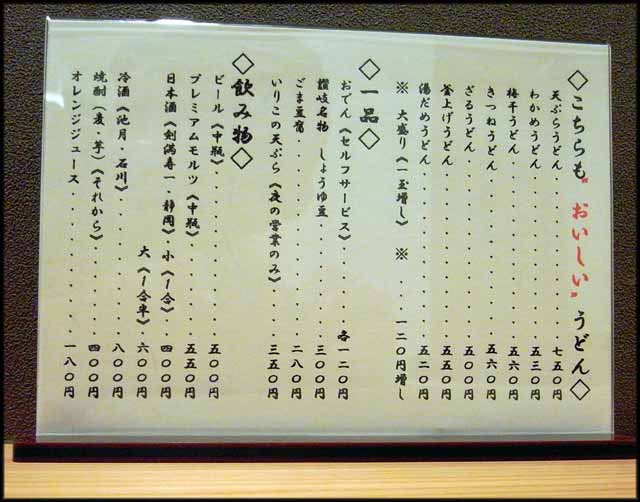 ◇こちらも"おいしい"うどん◇
天ぷらうどん・・・・・・・・・七五〇円
わかめうどん・・・・・・・・・五三〇円
梅干うどん・・・・・・・・・五六〇円
きつねうどん・・・・・・・・・五六〇円
ざるうどん・・・・・・・・・五六〇円
釜上げうどん・・・・・・・・・五四〇円
湯だめうどん・・・・・・・・・五二〇円
※ 大盛り《一玉増し》 ※ ・・・一二〇円増し
◇一品◇
おでん《セルフサービス》・・・・・各一二〇円
讃岐名物 しょうゆ豆・・・・・・三〇〇円
ごま豆腐・・・・・・・・・二八〇円
いりこの天ぷら《夜の営業のみ》・・・・三五〇円
◇飲み物◇
ビール《中瓶》・・・・・・・・・五〇〇円
プレミアムモルツ《中瓶》・・・・・・五五〇円
日本酒《剣満寿一・静岡》小《1合》・・四〇〇円
大《1合半》・・六〇〇円
冷酒《池月・石川》・・・・・・・八〇〇円
焼酎《麦・芋》《それから》・・・・・四〇〇円
オレンジジュース・・・・・・・・一八〇円